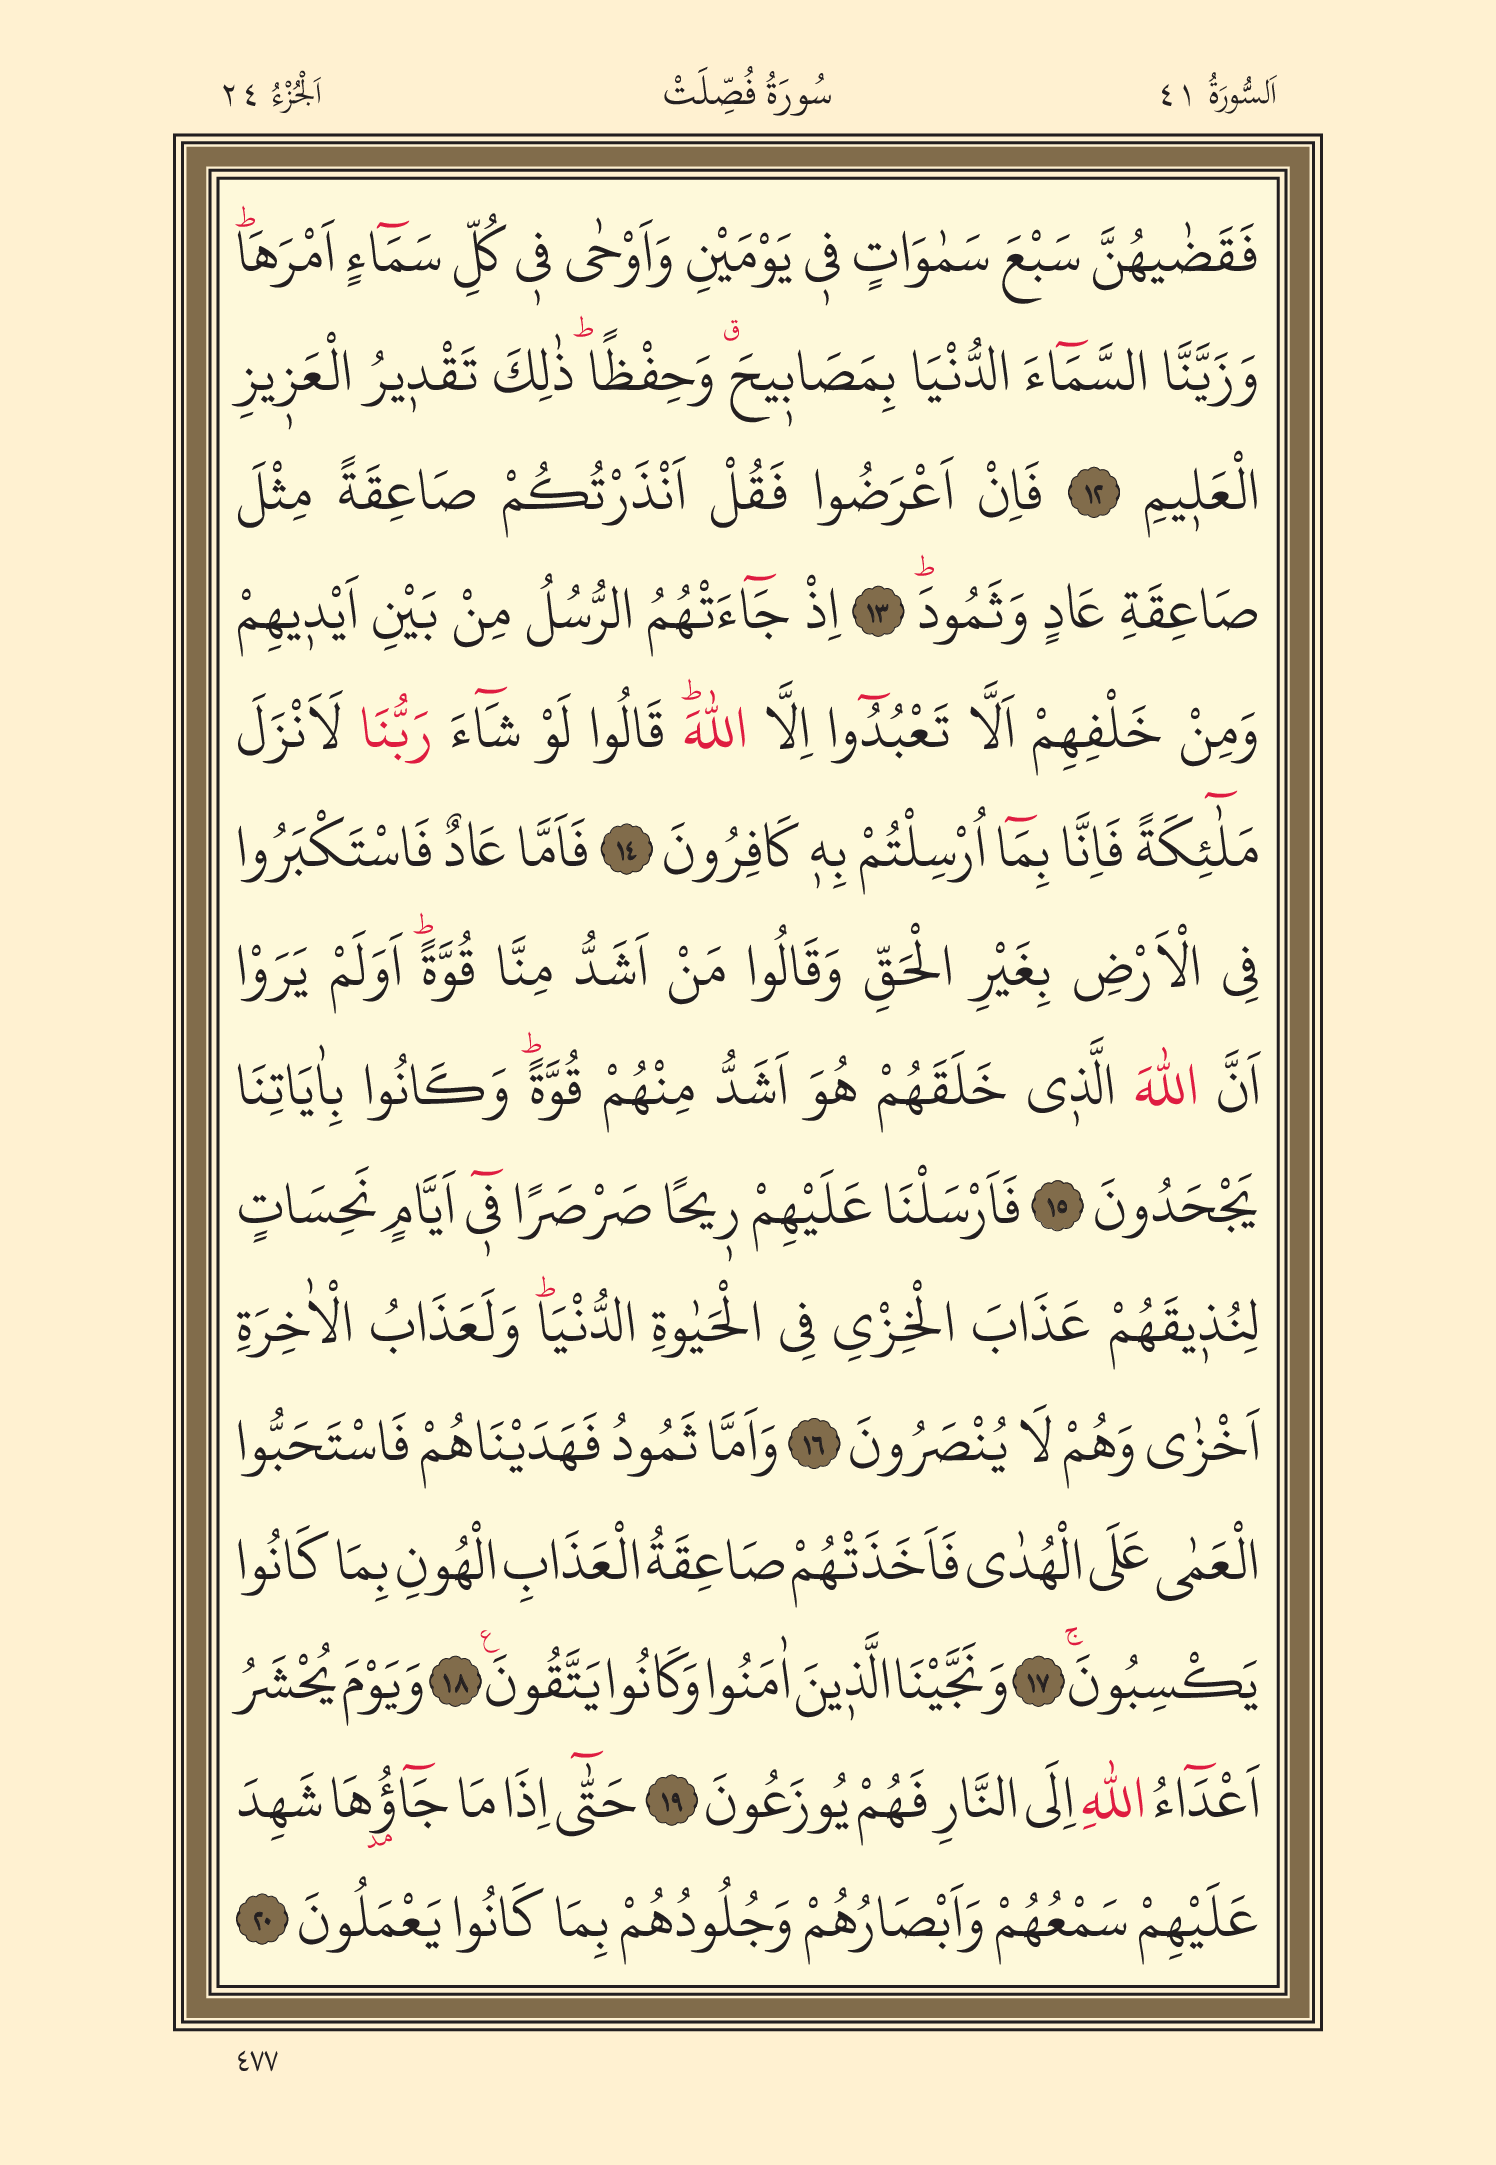 اَلسُّورَةُ ٤١ سُورَةُ فُصِّلَتْ اَلْجُزْءُ ٢٤
فَقَضٰيهُنَّ سَبْعَ سَمٰوَاتٍ ف۪ي يَوْمَيْنِ وَاَوْحٰى ف۪ي كُلِّ سَمَٓاءٍ اَمْرَهَاۜ
وَزَيَّنَّا السَّمَٓاءَ الدُّنْيَا بِمَصَاب۪يحَۗ وَحِفْظًاۜ ذٰلِكَ تَقْد۪يرُ الْعَز۪يزِ
الْعَل۪يمِ ﴿١٢﴾ فَاِنْ اَعْرَضُوا فَقُلْ اَنْذَرْتُكُمْ صَاعِقَةً مِثْلَ
صَاعِقَةِ عَادٍ وَثَمُودَۜ ﴿١٣﴾ اِذْ جَٓاءَتْهُمُ الرُّسُلُ مِنْ بَيْنِ اَيْد۪يهِمْ
وَمِنْ خَلْفِهِمْ اَلَّا تَعْبُدُٓوا اِلَّا اللّٰهَۜ قَالُوا لَوْ شَٓاءَ رَبُّنَا لَاَنْزَلَ
مَلٰٓئِكَةً فَاِنَّا بِمَٓا اُرْسِلْتُمْ بِه۪ كَافِرُونَ ﴿١٤﴾ فَاَمَّا عَادٌ فَاسْتَكْبَرُوا
فِي الْاَرْضِ بِغَيْرِ الْحَقِّ وَقَالُوا مَنْ اَشَدُّ مِنَّا قُوَّةًۜ اَوَلَمْ يَرَوْا
اَنَّ اللّٰهَ الَّذ۪ي خَلَقَهُمْ هُوَ اَشَدُّ مِنْهُمْ قُوَّةًۜ وَكَانُوا بِاٰيَاتِنَا
يَجْحَدُونَ ﴿١٥﴾ فَاَرْسَلْنَا عَلَيْهِمْ ر۪يحًا صَرْصَرًا ف۪ٓي اَيَّامٍ نَحِسَاتٍ
لِنُذ۪يقَهُمْ عَذَابَ الْخِزْيِ فِي الْحَيٰوةِ الدُّنْيَاۜ وَلَعَذَابُ الْاٰخِرَةِ
اَخْزٰى وَهُمْ لَا يُنْصَرُونَ ﴿١٦﴾ وَاَمَّا ثَمُودُ فَهَدَيْنَاهُمْ فَاسْتَحَبُّوا
الْعَمٰى عَلَى الْهُدٰى فَاَخَذَتْهُمْ صَاعِقَةُ الْعَذَابِ الْهُونِ بِمَا كَانُوا
يَكْسِبُونَۚ ﴿١٧﴾ وَنَجَّيْنَا الَّذ۪ينَ اٰمَنُوا وَكَانُوا يَتَّقُونَ ع ﴿١٨﴾ وَيَوْمَ يُحْشَرُ
اَعْدَٓاءُ اللّٰهِ اِلَى النَّارِ فَهُمْ يُوزَعُونَ ﴿١٩﴾ حَتّٰٓى اِذَا مَا جَٓاؤُ۫هَا شَهِدَ
عَلَيْهِمْ سَمْعُهُمْ وَاَبْصَارُهُمْ وَجُلُودُهُمْ بِمَا كَانُوا يَعْمَلُونَ ﴿٢٠﴾
٤٧٧